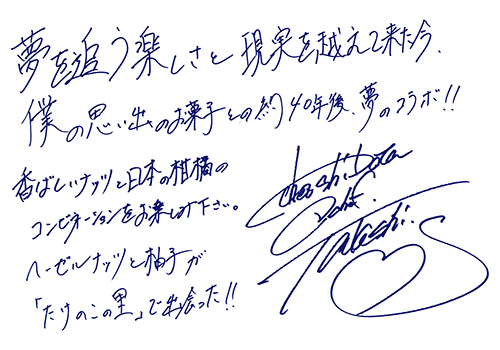 夢を追う楽しさと 現実を越えて来た今、
僕の思い出のお菓子との約40年後、夢のコラボ!!
香ばしいナッツと日本の柑橘の
コンビネーションをお楽しみ下さい。
ヘーゼルナッツと柚子が
「たけのこの里」で出会った!!
Takashi